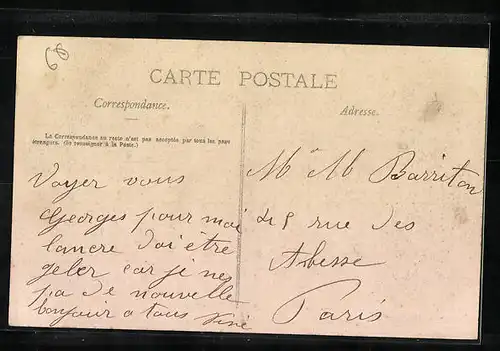 68
CARTE POSTALE
Correspondance.
Adresse.
La Correspondance au recto n'est pas acceptée par tous les pays
étrangers. (Se renseigner à la Poste.)
Voyer vous
Georges pour moi
lancre doi être
geler car je ne
pa de nouvelle
bonjour a tous
M M Barriton
48 rue des
Abesse
Paris